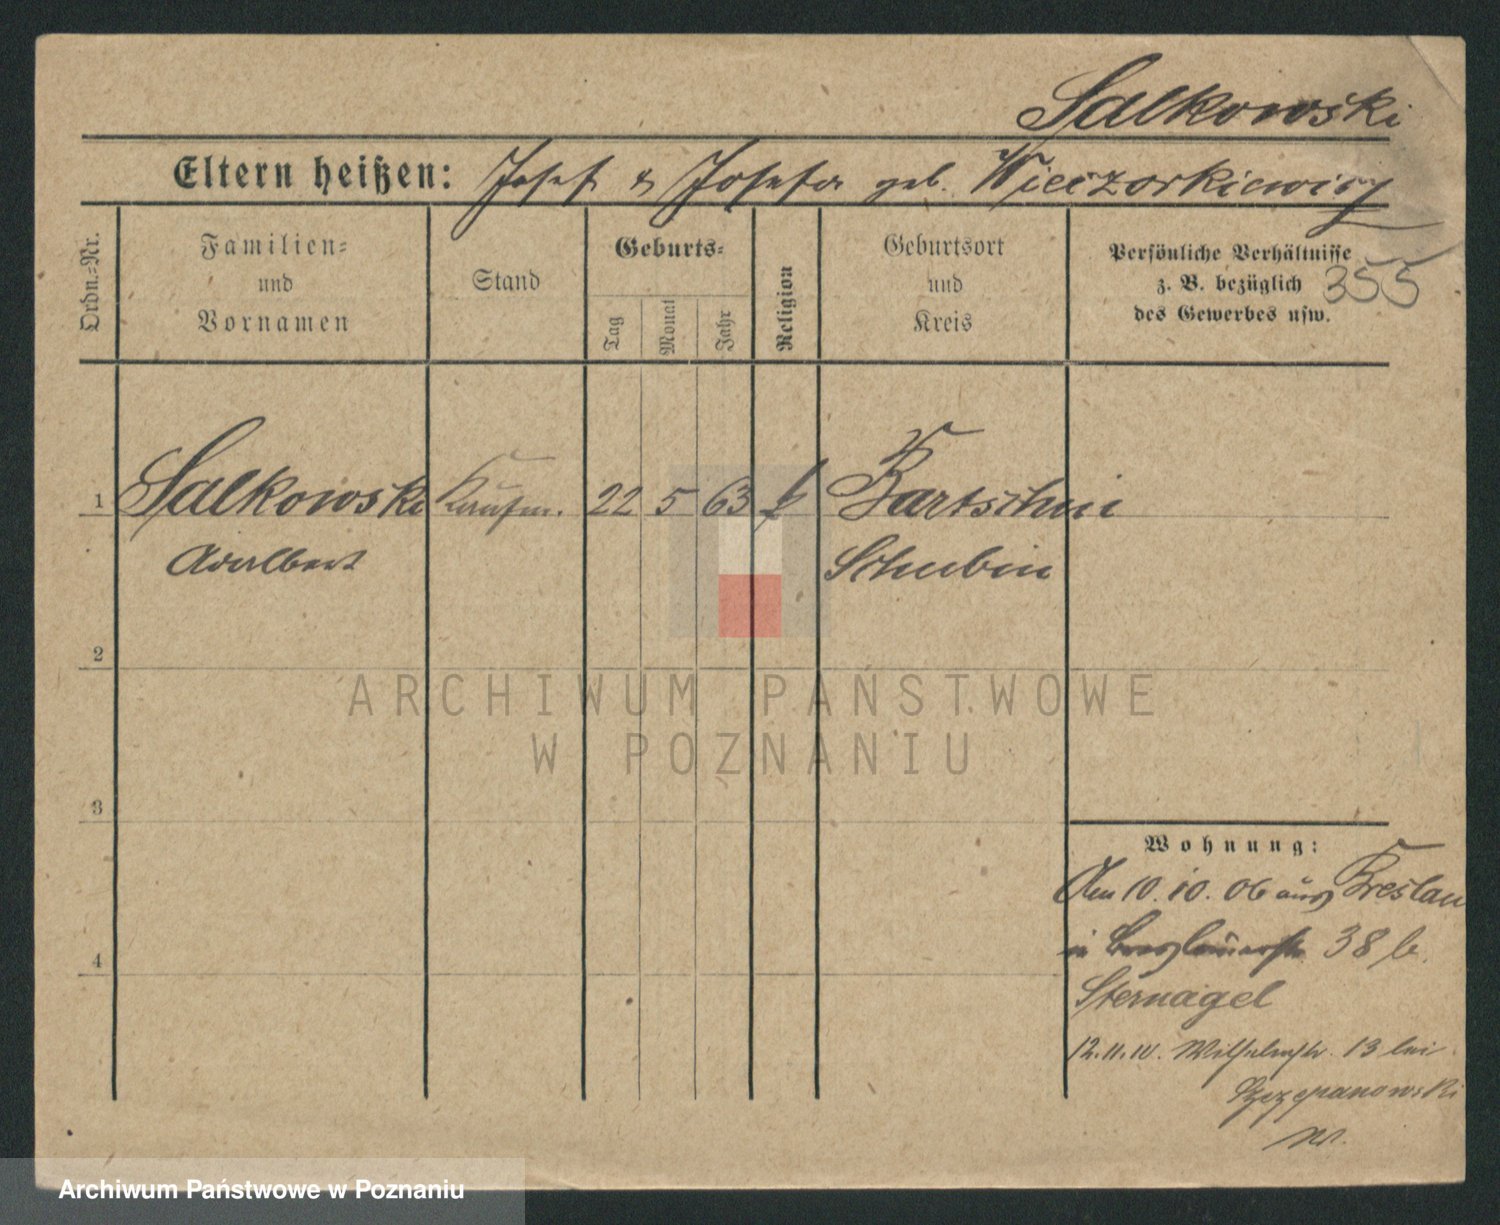 Salkowski
Eltern heißen: Josef & Josefa geb. Wieczorkiewicz
Ordn.=Nr.
Familien=
und
Vornamen
Stand
Geburts=
Tag
Monat
Jahr
Religion
Geburtsort
und
Kreis
Persönliche Verhältnisse
z. B. bezüglich
des Gewerbes usw.
355
1 Salkowski Kaufm. 22 5 63 k Bartschin
Adalbert Schubin
2
ARCHIWUM PAŃSTWOWE
W POZNANIU
3
4
Wohnung:
Am 10.10.06 aus Breslau
in 38 b.
Sternagel
12.11.10. Wilhelmstr. 13 bei
Szczepanowski
Archiwum Państwowe w Poznaniu